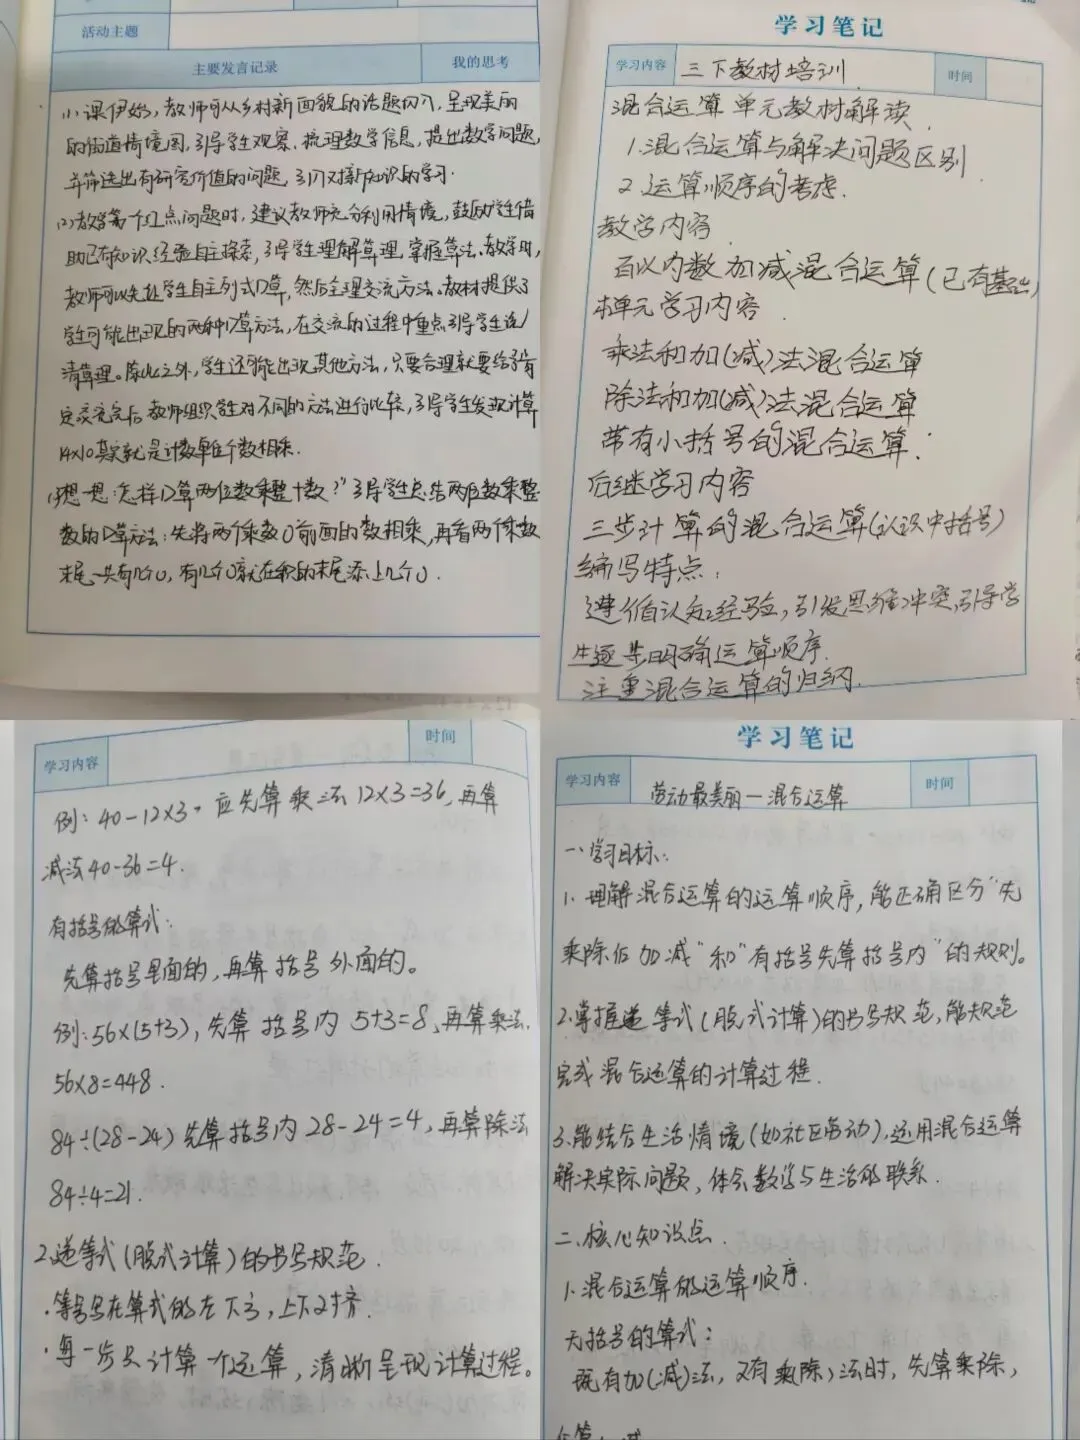 活动主题
主要发言记录 我的思考
(1)课伊始,教师可从乡村新面貌的话题切入,呈现美丽
的街道情境图,引导学生观察、梳理数学信息,提出数学问题,
并筛选出有研究价值的问题,引入对新知识的学习.
(2)教学第一个红点问题时,建议教师充分利用情境,鼓励学生借
助已有知识经验自主探索,引导学生理解算理,掌握算法.教学时,
教师可以先让学生自主列式口算,然后全理交流方法.教材提供了
学生可能出现的两种口算方法,在交流的过程中重点引导学生说
清算理。除此之外,学生还可能出现其他方法,只要合理就要给予肯
定交流完后教师组织学生对不同的方法进行比较,引导学生发现计算
14×10其实就是计数单位个数相乘.
想一想:怎样口算两位数乘整十数?"引导学生总结两位数乘整
数的口算方法:先将两个乘数0前面的数相乘,再看两个乘数
末尾一共有几个0,有几个0就在积的末尾添上几个0.
学习笔记
学习内容 三下教材培训 时间
混合运算单元教材解读.
1.混合运算与解决问题区别
2.运算顺序的考虑.
教学内容
百以内数加减混合运算(已有基础)
本单元学习内容.
乘法和加(减)法混合运算
除法和加(减)法混合运算
带有小括号的混合运算.
后继学习内容
三步计算的混合运算(认识中括号)
编写特点:
遵循认知经验,引发思维冲突,引导学
生逐步明确运算顺序.
注重混合运算的归纳.
学习内容 时间
例:40-12×3,应先算乘法12×3=36,再算
减法40-36=4.
有括号的算式:
先算括号里面的,再算括号外面的。
例:56×(5+3),先算括号内5+3=8,再算乘法,
56×8=448.
84÷(28-24)先算括号内28-24=4,再算除法
84÷4=21.
2.递等式(脱式计算)的书写规范.
·等号写在算式的左下方,上下对齐.
·每一步只计算一个运算,清晰呈现计算过程。
学习笔记
学习内容 劳动最美丽—混合运算 时间
一.学习目标:
1.理解混合运算的运算顺序,能正确区分"先
乘除后加减"和"有括号先算括号内"的规则。
2.掌握递等式(脱式计算)的书写规范,能规范
完成混合运算的计算过程.
3.能结合生活情境(如社区劳动),运用混合运算
解决实际问题,体会数学与生活的联系.
二.核心知识点.
1.混合运算的运算顺序.
无括号的算式:
既有加(减)法,又有乘(除)法时,先算乘除,